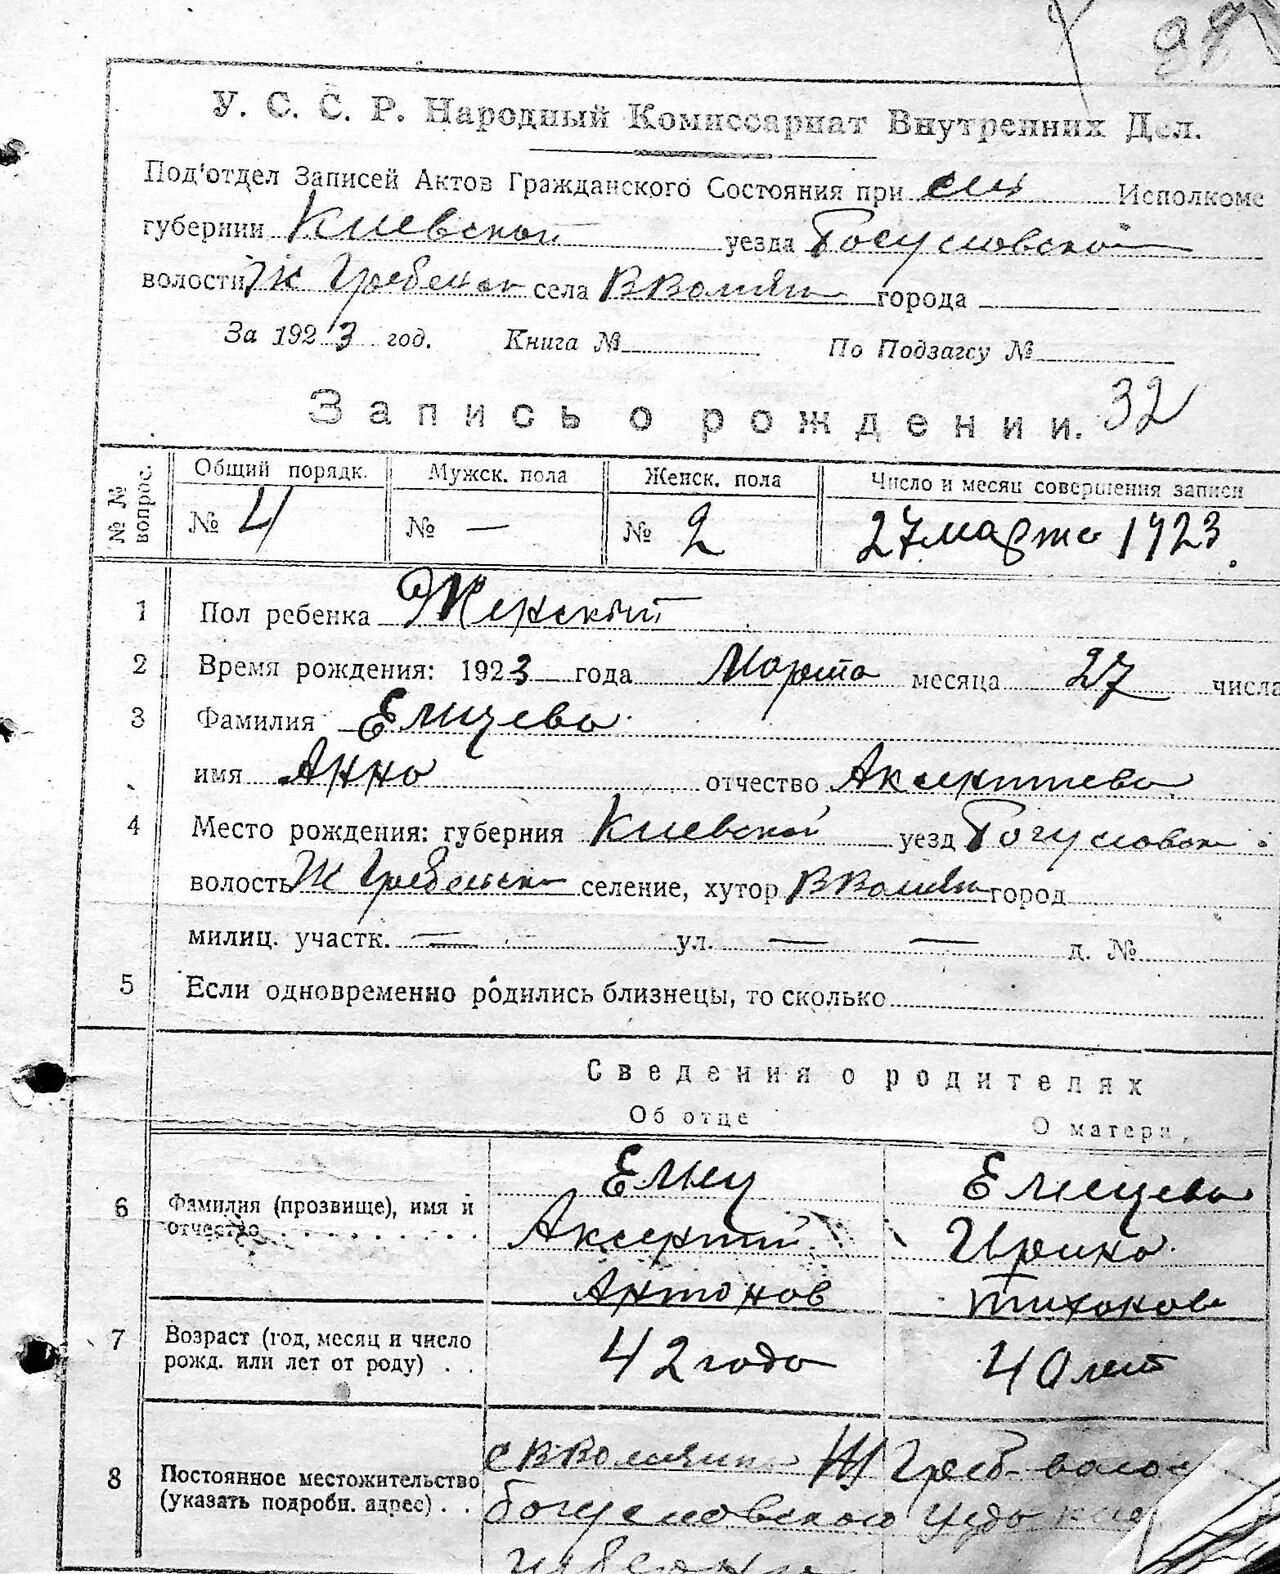 У. С. С. Р. Народный Комиссариат Внутренних Дел.
Под'отдел Записей Актов Гражданского Состояния при сел Исполкоме
губернии Киевской уезда Богусловской
волости Ж Гребенск села города
За 1923 год. Книга № По Подзагсу №
Запись о рождении. 32
№ № вопрос.
Общий порядк. Мужск. пола Женск. пола Число и месяц совершения записи
№ 4 № — № 2 27 марта 1923.
1 Пол ребенка Женский
2 Время рождения: 1923 года Марта месяца 27 числа
3 Фамилия Елицева
имя Анна отчество Аксентиева
4 Место рождения: губерния Киевской уезд Богусловск
волость Ж Гребенск селение, хутор город
милиц. участк. — ул. — — д. №
5 Если одновременно родились близнецы, то сколько
Сведения о родителях
Об отце О матери,
6 Фамилия (прозвище), имя и отчество . . . . . . . . .
Елец
Аксентий
Антонов
Елецева
Ирина
Тихонов
7 Возраст (год, месяц и число рожд. или лет от роду) . .
42 года 40 лет
8 Постоянное местожительство (указать подробн. адрес) . .
Ж Греб волос
богусловского уезда кие
губернии